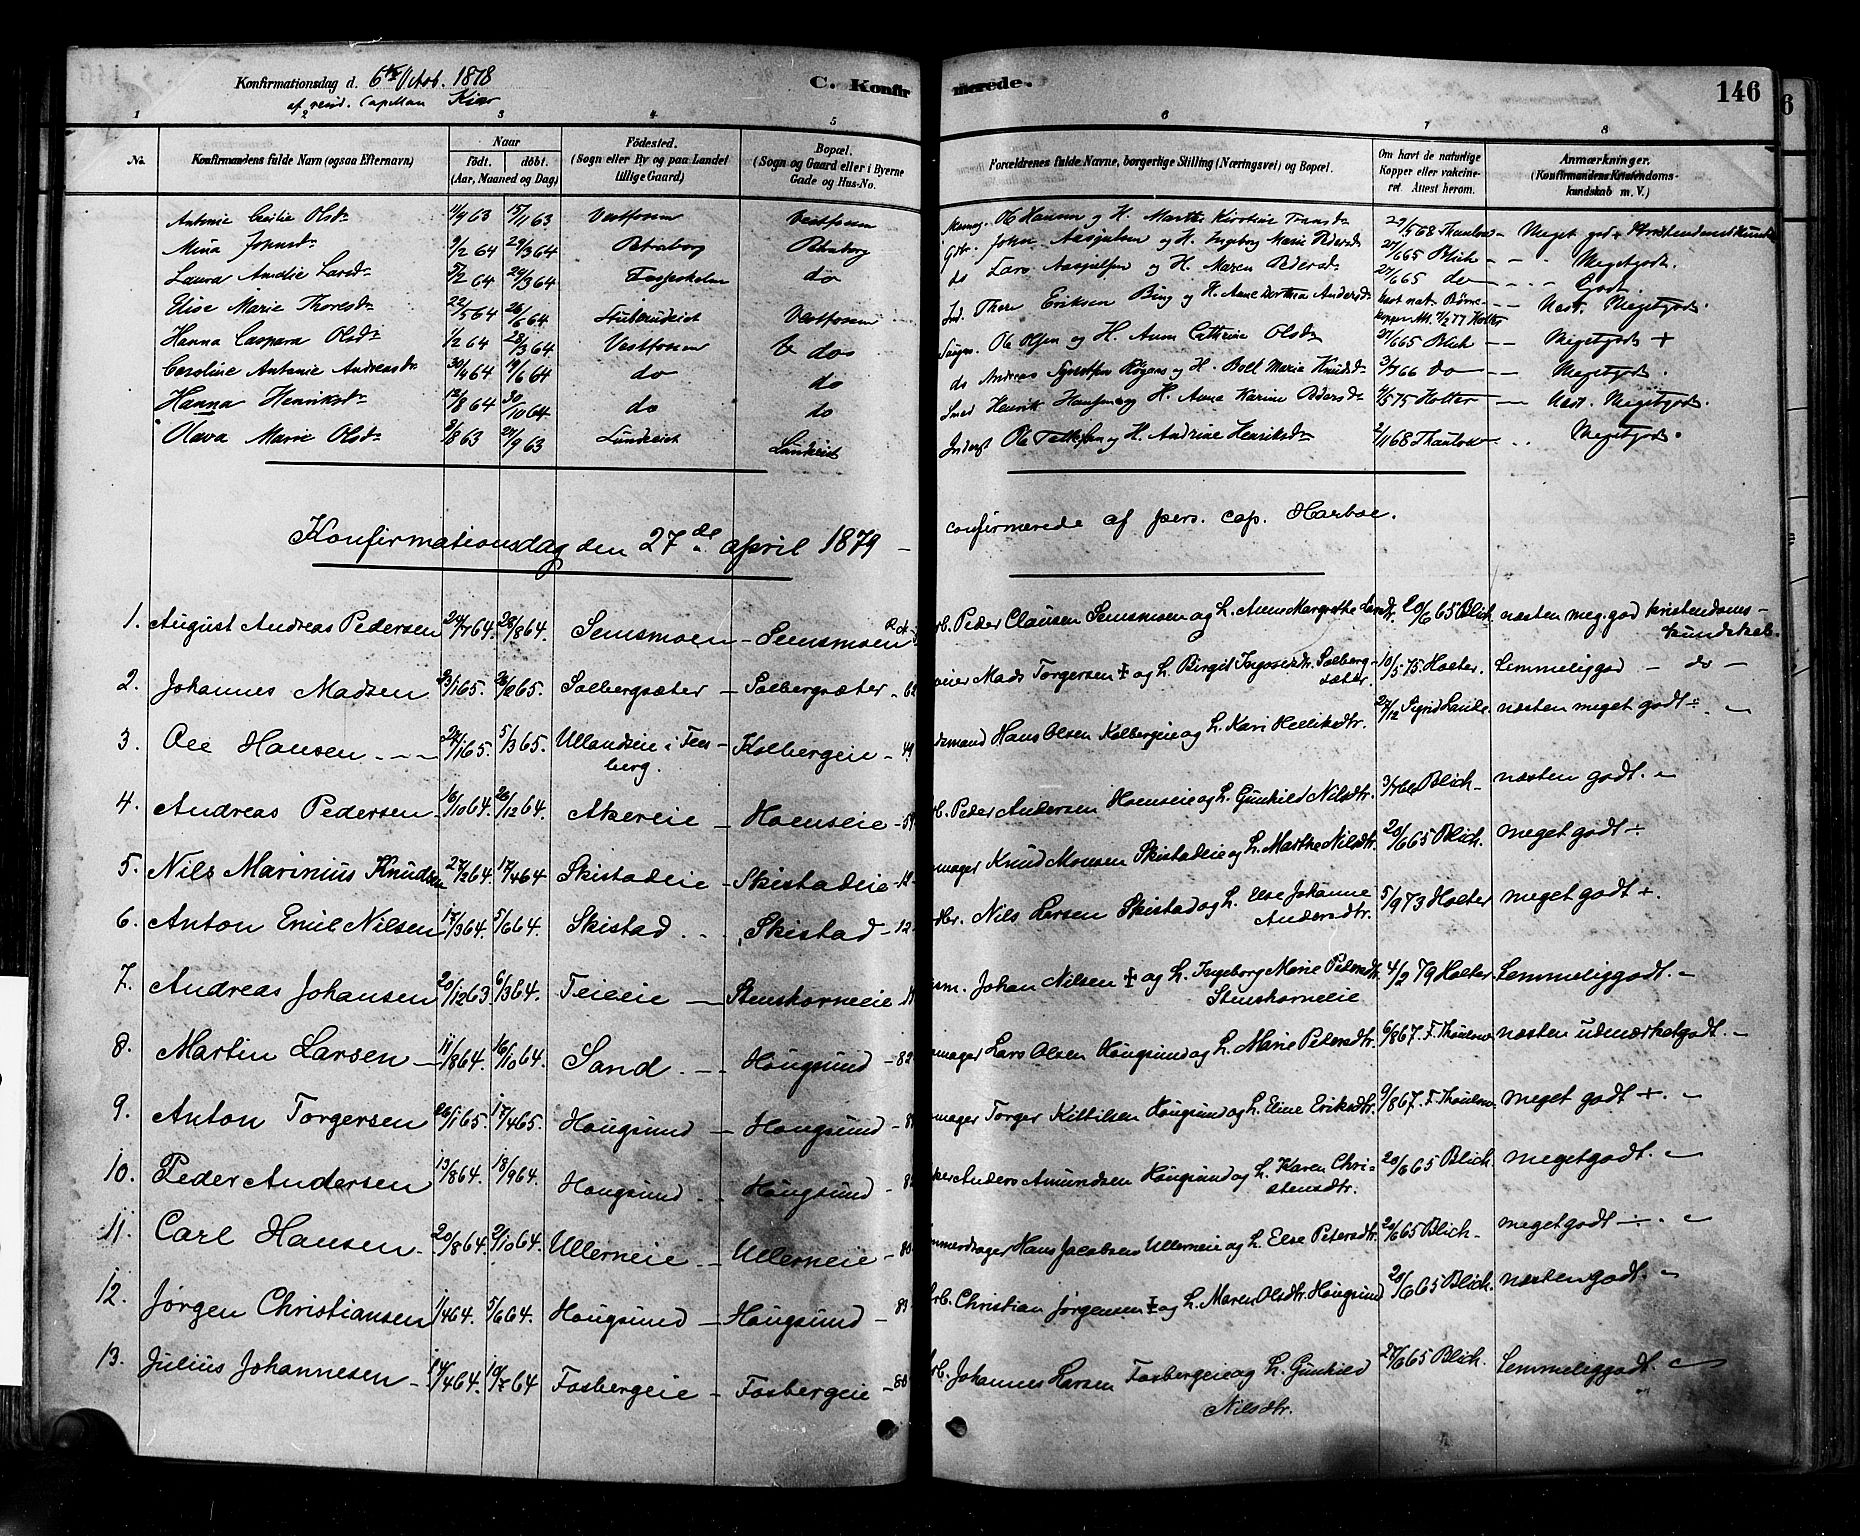 Konfirmationsdag d. 6te Octob. 1878
af resid. Capellan Kiær
C. Konfirmerede.
146
1 2 3 4 5 6 7 8
No. Konfirmandens fulde Navn (ogsaa Efternavn) Naar Født. døbt. (Aar, Maaned og Dag) Fødested. (Sogn eller By og paa Landet tillige Gaard) Bopæl. (Sogn og Gaard eller i Byerne Gade og Hus-No. Forældrenes fulde Navne, borgerlige Stilling (Næringsvei) og Bopæl. Om havt de naturlige Kopper eller vakcineret. Attest herom. Anmærkninger. (Konfirmandens Kristendomskundskab m. V.)
Antonie Cecilie Olsdr 11/9 63 15/11 63 Vestfossen Vestfossen Ole Hansen og H. Marthe Kirstine Fransdr 29/5 68 Thaulow Meget god Christendomskundsk
Mina Johnsdr 9/2 64 28/3 64 Petersborg John Aasjulsen og H. Ingeborg Marie Pedersdr 27/6 65 Blich Megetgodt.
Laura Amalie Larsdr 5/2 64 28/3 64 Fosseholm do do Lars Aasjulsen og H. Maren Pedersdr 27/6 65 do Godt.
Elise Marie Thoresdr 22/5 64 26/6 64 Stuberudeiet Vestfossen Ind. Thore Eriksen Bing og H. Anne Dorthea Andersdr havt nat. Børnekopper Att. 7/2 77 Holter Næst. Megetgodt.
Hanna Caspara Olsdr 1/2 64 28/3 64 Vestfossen do Ole Olsen og H. Anne Cathrine Olsdr 27/6 65 Blich Megetgodt +
Caroline Antonie Andreasdr 30/4 64 19/6 64 do do do Andreas Syvertsen og H. Bolt Marie Knudsdr 3/7 66 do Megetgodt.
Hanna Henriksdr 12/8 64 30/10 64 do do Smed Henrik Hansen og H. Anna Karine Pedersdr 4/5 75 Holter Næst. Megetgodt.
Olava Marie Olsdr 2/8 63 27/9 63 Lundeiet Lundeiet Inderst Ole og H. Andrine Henriksdr 2/11 68 Thaulow Megetgodt.
Konfirmationsdag den 27de april 1879 – confirmerede af pers. cap. Harboe.
1. August Andreas Pedersen 24/7 64. 28/8 64. Semsmoen – Semsmoen rb. Peder Clausen Semsmoen og h. Anne Margrethe Larsdtr. 20/6 65 Blich næsten meg. god kristendoms-kundskab.
2. Johannes Madsen 23/1 65. 26/2 65. Solbergsæter – Solbergsæter eier Mads Torgersen ‡ og h. Birgit Ingvoldsdtr. Solbergsæter. 10/5 75 Holter. Temmeliggod – do –
3. Ole Hansen – – – 24/1 65. 5/3 65. Ullandseie i Flesberg. Kolbergeie – 49 dsmand Hans Olsen Kolbergeie og h. Kari Hellikdtr. 27/12 Sigrid Lande næsten meget godt ÷
4. Andreas Pedersen 16/10 64. 26/12 64. Akereie – Hoenseie – 54 rb. Peder Andersen Hoenseie og h. Gunhild Nilsdtr. 3/7 66 Blich. næsten godt. –
5. Nils Marinius Knudsen 27/2 64. 17/4 64 Skistadeie – Skistadeie – 12 mager Knud Monsen Skistadeie og h. Marthe Nilsdtr. 20/6 65 Blich. meget godt ÷
6. Anton Emil Nilsen 17/3 64. 5/6 64. Skistad – Skistad – 12. dbr. Nils Larsen Skistad og h. Else Johanne Andersdtr. 5/9 73 Holter meget godt +.
7. Andreas Johansen 20/12 63 6/3 64. Teieeie – Stenskorneeie sm. Johan Nilsen ‡ og h. Ingeborg Marie Petersdtr. Stenskorneeie 4/2 79 Holter Temmeliggodt. –
8. Martin Larsen – 11/8 64. 16/10 64. Sand – Hougsund – 82 mager Lars Olsen Hougsund og h. Marie Petersdtr. 6/8 67. F. Thaulow næsten udmærketgodt. –
9. Anton Torgersen 26/1 65. 17/4 65. Hougsund – Hougsund mager Torger Kittilsen Hougsund og h. Eline Eriksdtr. 9/8 67. F. Thaulow. meget godt +. –
10. Peder Andersen 13/8 64. 18/9 64. Hougsund – Hougsund Anders Amundsen Hougsund og h. Karen Christensdtr. 20/6 65 Blich. megetgodt. –
11. Carl Hansen – 20/8 64. 2/10 64. Ullerneie – Ullerneie – 80 mmerdrager Hans Jacobsen Ullerneie og h. Else Petersdtr. 20/6 65 Blich. megetgodt ÷. –
12. Jørgen Christiansen 1/4 64. 5/6 64. Hougsund – Hougsund – 83 rb. Christian Jørgensen ‡ og h. Maren Olsdtr. Hougsund 20/6 65 Blich. næsten godt. –
13. Julius Johannesen – 14/4 64. 19/5 64 Fosbergeie – Fosbergeie – 80 rb. Johannes Larsen Fosbergeie og h. Gunhild Nilsdtr. 27/6 65 Blich. Temmeliggodt. –